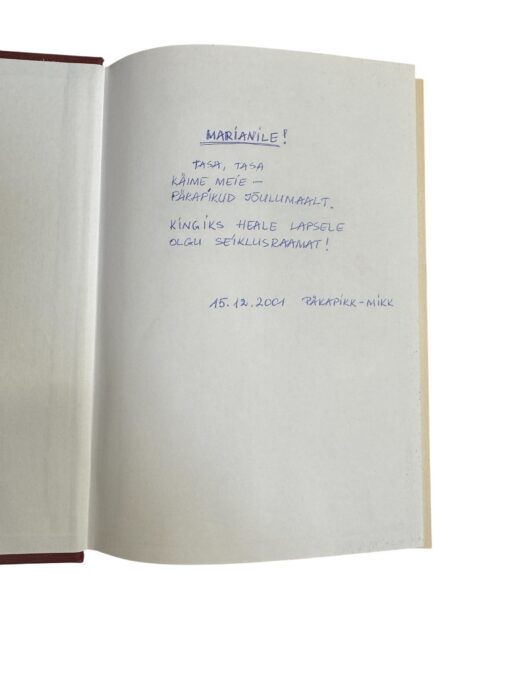 MARIANILE!
TASA, TASA
KÄIME MEIE –
PÄKAPIKUD JÕULUMAALT.
KINGIKS HEALE LAPSELE
OLGU SEIKLUSRAAMAT!
15.12.2001 PÄKAPIKK-MIKK